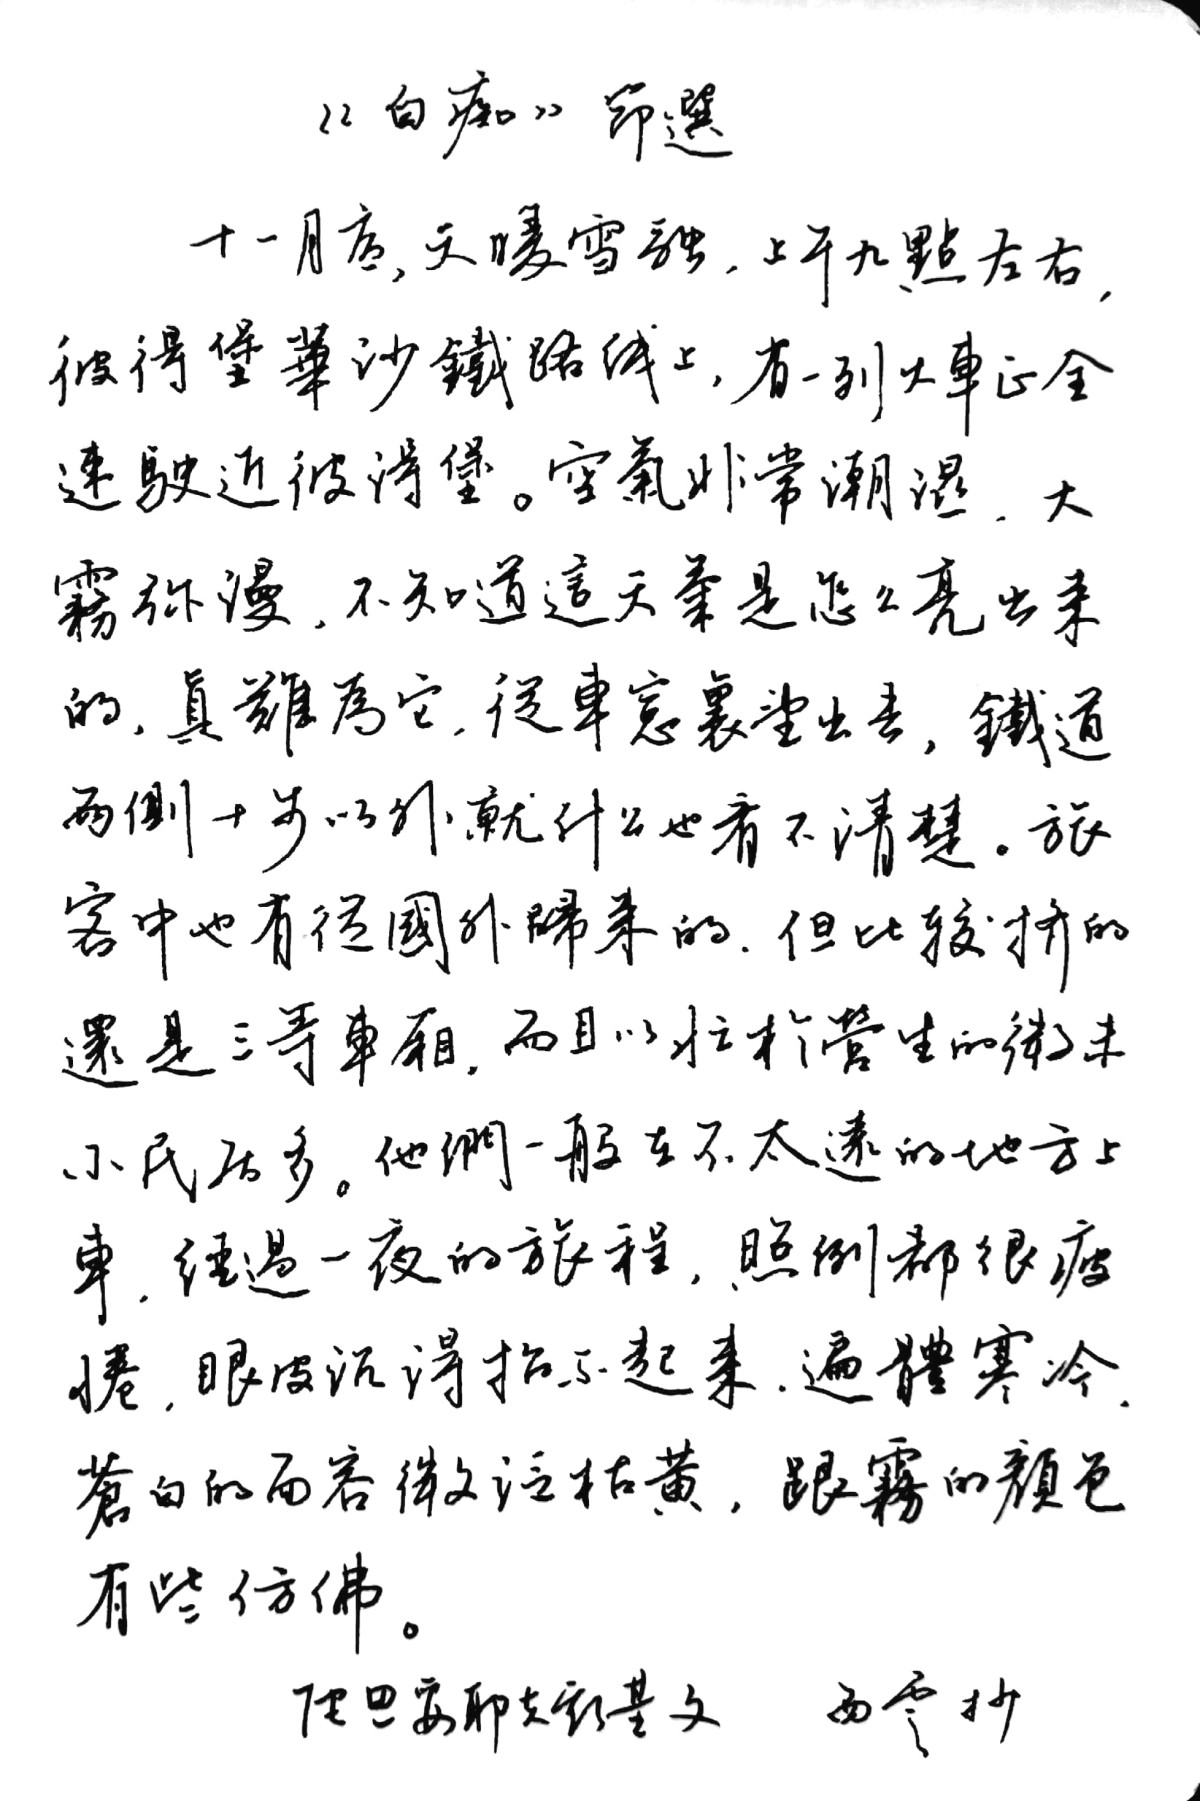 《白痴》節選
十一月底,天暖雪融,上午九點左右,
彼得堡華沙鐵路线上,有一列火車正全
速駛近彼得堡。空氣非常潮濕,大
霧弥漫,不知道這天氣是怎么亮出来
的,真難為它,從車窓裏望出去,鐵道
兩側十步以外就什么也看不清楚。旅
客中也有從國外歸来的,但比較挤的
還是三等車厢,而且以忙於營生的微末
小民居多。他們一般在不太遠的地方上
車,經過一夜的旅程,照例都很疲
惓,眼皮沉得抬不起来,遍體寒冷,
蒼白的面容微微泛枯黃,跟霧的顏色
有些仿佛。
陀思妥耶夫斯基文 西雲抄